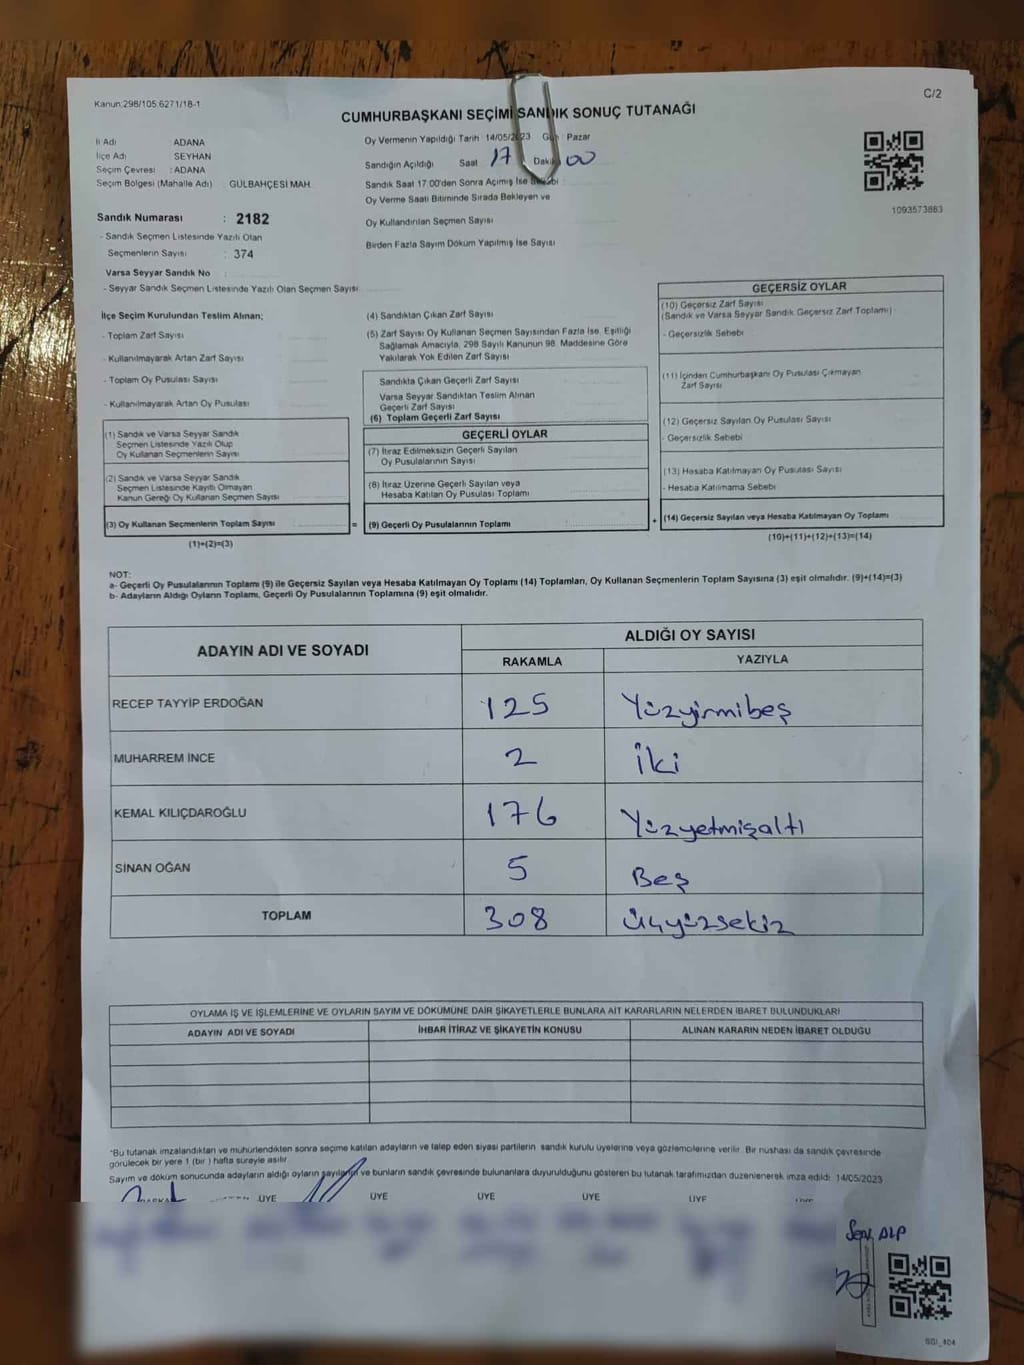 Kanun:298/105,6271/18-1
C/2
CUMHURBAŞKANI SEÇİMİ SANDIK SONUÇ TUTANAĞI
İl Adı ADANA
İlçe Adı SEYHAN
Seçim Çevresi : ADANA
Seçim Bölgesi (Mahalle Adı) GÜLBAHÇESİ MAH.
Oy Vermenin Yapıldığı Tarih 14/05/2023 Gün Pazar
Sandığın Açıldığı Saat 17 Dakika 00
Sandık Saat 17:00'den Sonra Açılmış İse Sebebi :
Oy Verme Saati Bitiminde Sırada Bekleyen ve
Oy Kullandırılan Seçmen Sayısı
Birden Fazla Sayım Döküm Yapılmış İse Sayısı
1093573883
Sandık Numarası : 2182
- Sandık Seçmen Listesinde Yazılı Olan
Seçmenlerin Sayısı : 374
Varsa Seyyar Sandık No :
- Seyyar Sandık Seçmen Listesinde Yazılı Olan Seçmen Sayısı
İlçe Seçim Kurulundan Teslim Alınan;
- Toplam Zarf Sayısı
- Kullanılmayarak Artan Zarf Sayısı
- Toplam Oy Pusulası Sayısı
- Kullanılmayarak Artan Oy Pusulası
(1) Sandık ve Varsa Seyyar Sandık
Seçmen Listesinde Yazılı Olup
Oy Kullanan Seçmenlerin Sayısı
(2) Sandık ve Varsa Seyyar Sandık
Seçmen Listesinde Kayıtlı Olmayan
Kanun Gereği Oy Kullanan Seçmen Sayısı
(3) Oy Kullanan Seçmenlerin Toplam Sayısı
(1)+(2)=(3)
(4) Sandıktan Çıkan Zarf Sayısı
(5) Zarf Sayısı Oy Kullanan Seçmen Sayısından Fazla İse, Eşitliği
Sağlamak Amacıyla, 298 Sayılı Kanunun 98. Maddesine Göre
Yakılarak Yok Edilen Zarf Sayısı
Sandıkta Çıkan Geçerli Zarf Sayısı
Varsa Seyyar Sandıktan Teslim Alınan
Geçerli Zarf Sayısı
(6) Toplam Geçerli Zarf Sayısı
GEÇERLİ OYLAR
(7) İtiraz Edilmeksizin Geçerli Sayılan
Oy Pusulalarının Sayısı
(8) İtiraz Üzerine Geçerli Sayılan veya
Hesaba Katılan Oy Pusulası Toplamı
= (9) Geçerli Oy Pusulalarının Toplamı
GEÇERSİZ OYLAR
(10) Geçersiz Zarf Sayısı
(Sandık ve Varsa Seyyar Sandık Geçersiz Zarf Toplamı)
- Geçersizlik Sebebi
(11) İçinden Cumhurbaşkanı Oy Pusulası Çıkmayan
Zarf Sayısı
(12) Geçersiz Sayılan Oy Pusulası Sayısı
- Geçersizlik Sebebi
(13) Hesaba Katılmayan Oy Pusulası Sayısı
- Hesaba Katılmama Sebebi
+ (14) Geçersiz Sayılan veya Hesaba Katılmayan Oy Toplamı
(10)+(11)+(12)+(13)=(14)
NOT:
a- Geçerli Oy Pusulalarının Toplamı (9) ile Geçersiz Sayılan veya Hesaba Katılmayan Oy Toplamı (14) Toplamları, Oy Kullanan Seçmenlerin Toplam Sayısına (3) eşit olmalıdır. (9)+(14)=(3)
b- Adayların Aldığı Oyların Toplamı, Geçerli Oy Pusulalarının Toplamına (9) eşit olmalıdır.
ADAYIN ADI VE SOYADI ALDIĞI OY SAYISI
RAKAMLA YAZIYLA
RECEP TAYYİP ERDOĞAN 125 Yüzyirmibeş
MUHARREM İNCE 2 İki
KEMAL KILIÇDAROĞLU 176 Yüzyetmişaltı
SİNAN OĞAN 5 Beş
TOPLAM 308 Üçyüzsekiz
OYLAMA İŞ VE İŞLEMLERİNE VE OYLARIN SAYIM VE DÖKÜMÜNE DAİR ŞİKAYETLERLE BUNLARA AİT KARARLARIN NELERDEN İBARET BULUNDUKLARI
ADAYIN ADI VE SOYADI İHBAR İTİRAZ VE ŞİKAYETİN KONUSU ALINAN KARARIN NEDEN İBARET OLDUĞU
*Bu tutanak imzalandıktan ve mühürlendikten sonra seçime katılan adayların ve talep eden siyasi partilerin sandık kurulu üyelerine veya gözlemcilerine verilir. Bir nüshası da sandık çevresinde
görülecek bir yere 1 (bir) hafta süreyle asılır.
Sayım ve döküm sonucunda adayların aldığı oyların sayılarını ve bunların sandık çevresinde bulunanlara duyurulduğunu gösteren bu tutanak tarafımızdan düzenlenerek imza edildi. 14/05/2023
BAŞKAN ÜYE ÜYE ÜYE ÜYE ÜYE ÜYE
ALP